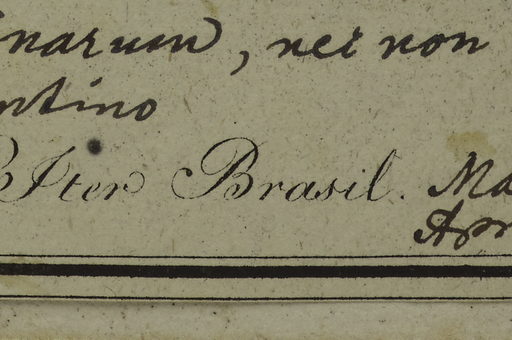 narum, nec non
ntino
Iter Brasil. Ma
Apr